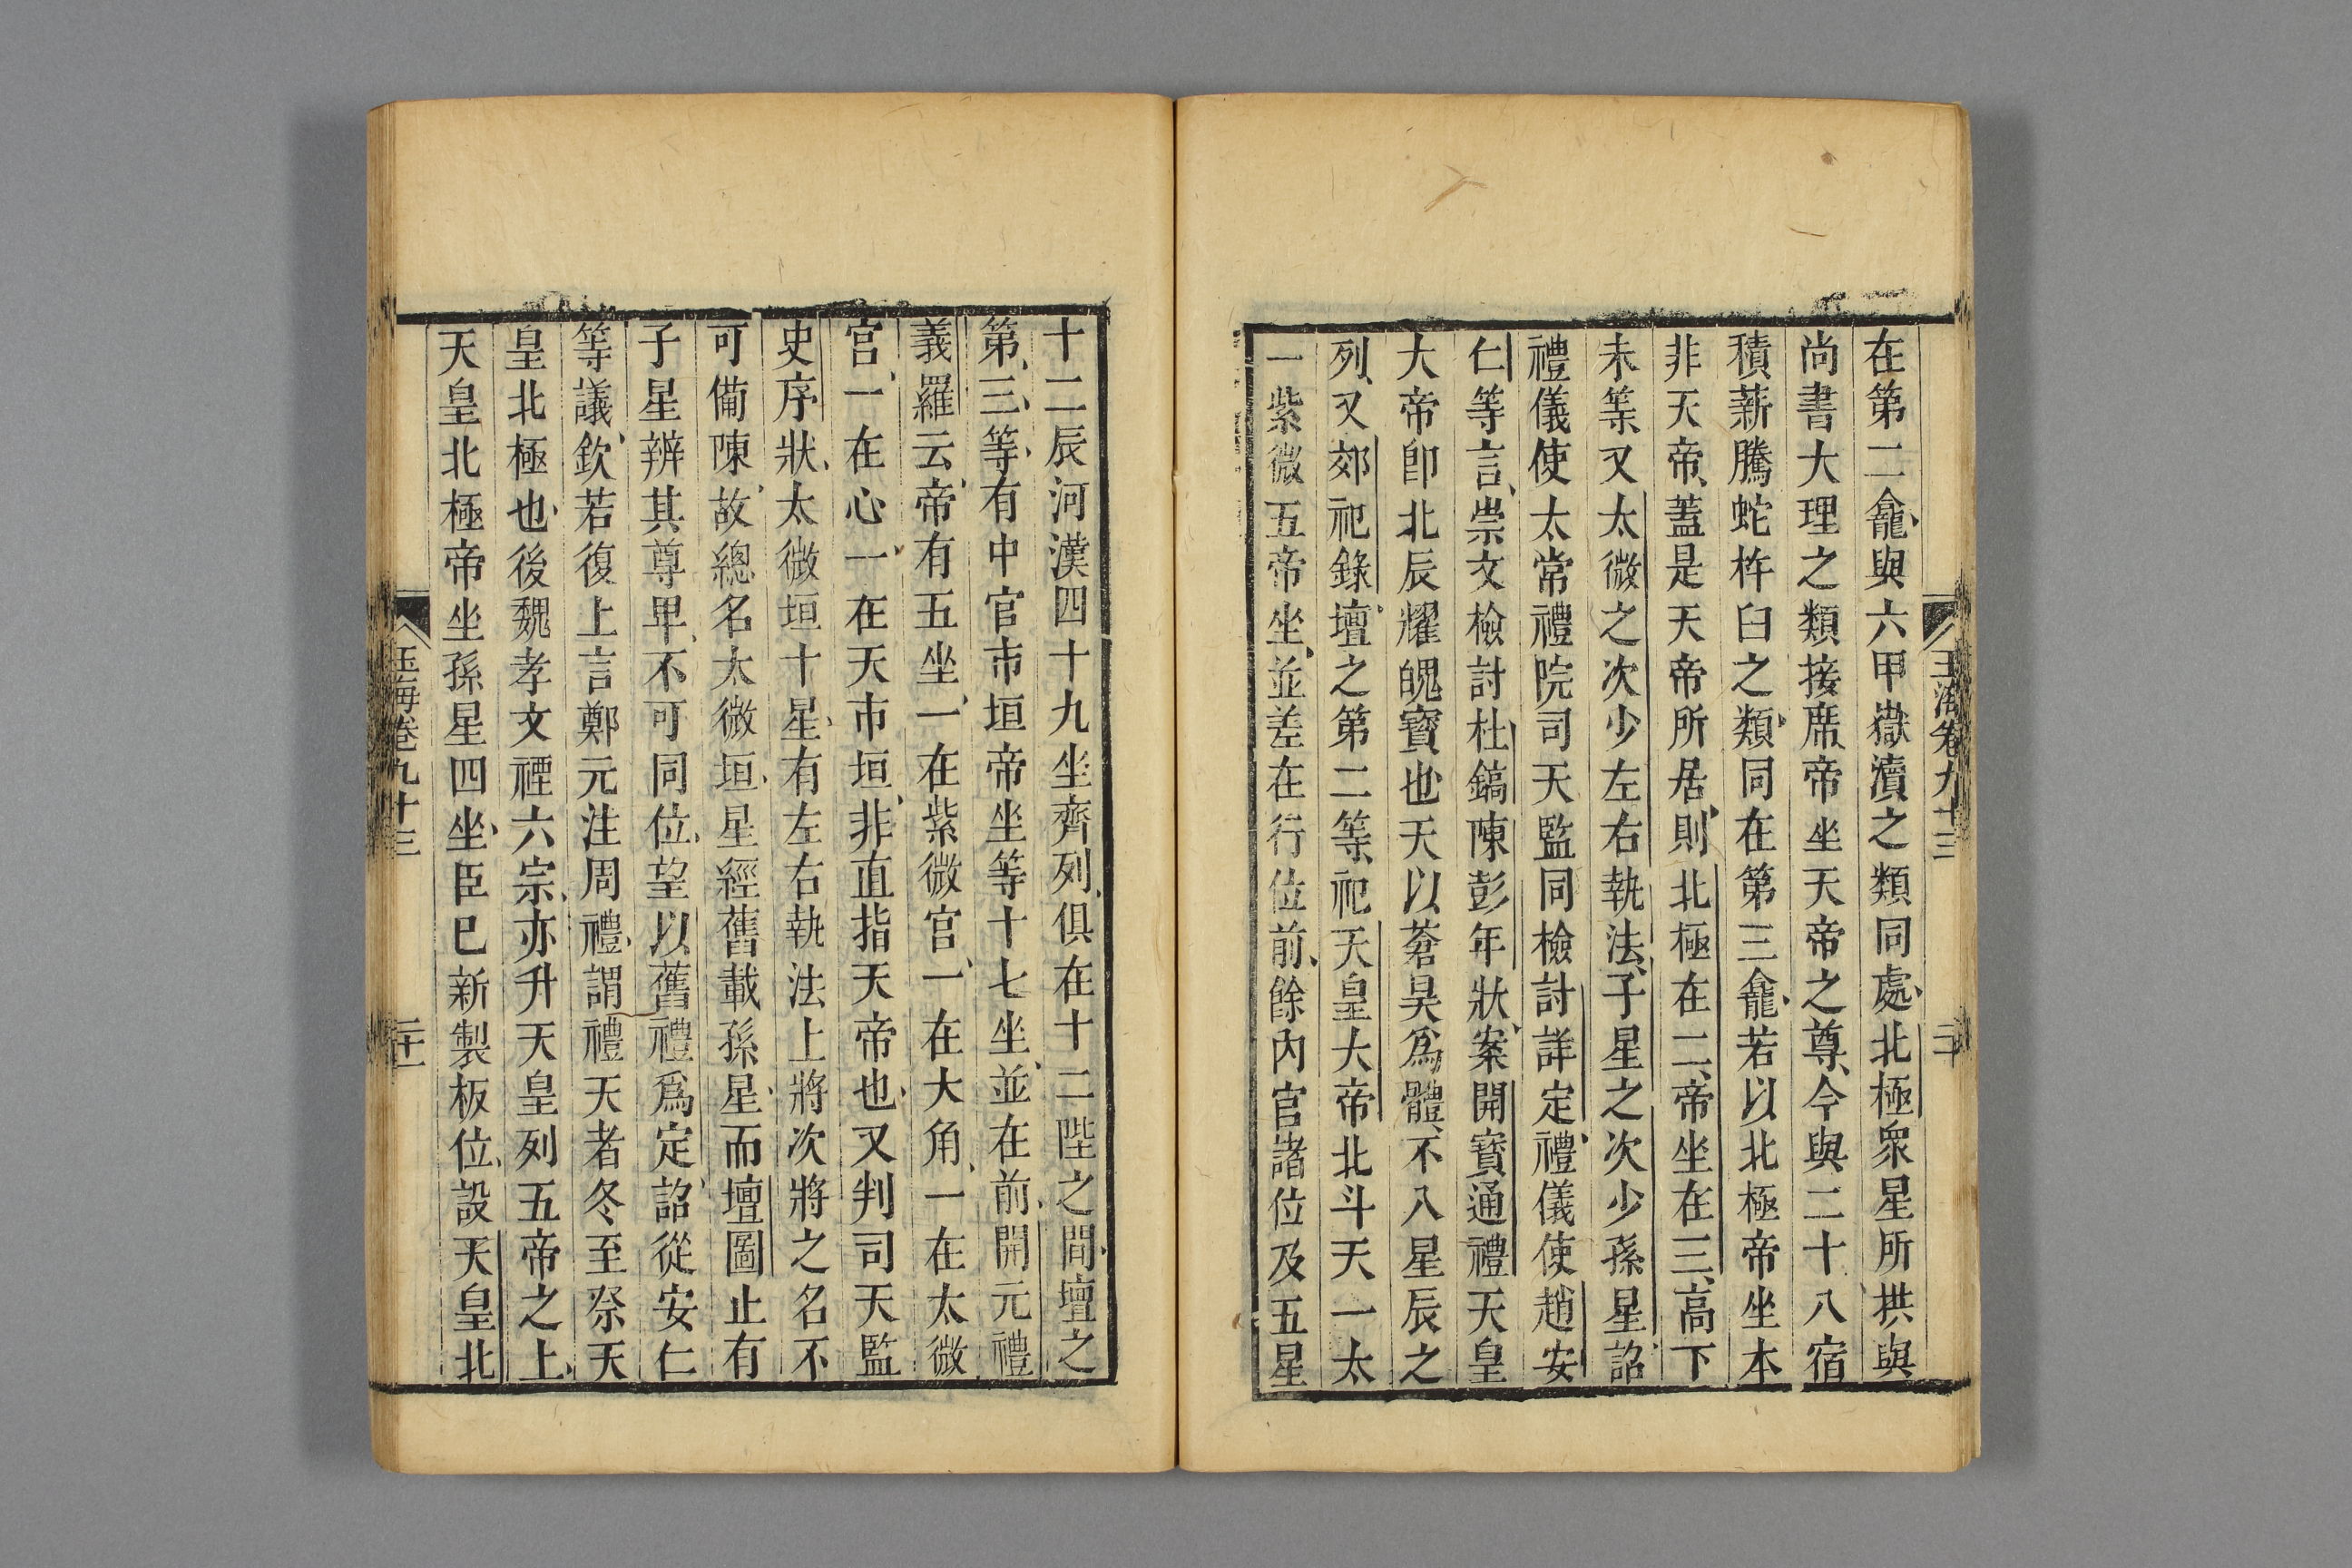 在第二龕與六甲嶽瀆之類同處北極眾星所拱與
尚書大理之類接席帝坐天帝之尊今與二十八宿
積薪騰蛇杵臼之類同在第三龕若以北極帝坐本
非天帝蓋是天帝所居則北極在二帝坐在三高下
未等又太微之次少左右執法子星之次少孫星詔
禮儀使太常禮院司天監同檢討詳定禮儀使趙安
仁等言崇文檢討杜鎬陳彭年狀案開寶通禮天皇
大帝卽北辰耀魄寶也天以蒼昊爲體不入星辰之
列又郊祀錄壇之第二等祀天皇大帝北斗天一太
一紫微五帝坐並差在行位前餘內官諸位及五星
十二辰河漢四十九坐齊列俱在十二陛之間壇之
第三等有中官市垣帝坐等十七坐並在前開元禮
義羅云帝有五坐一在紫微宮一在大角一在太微
宮一在心一在天市垣非直指天帝也又判司天監
史序狀太微垣十星有左右執法上將次將之名不
可備陳故總名太微垣星經舊載孫星而壇圖止有
子星辨其尊卑不可同位望以舊禮爲定詔從安仁
等議欽若復上言鄭元注周禮謂禮天者冬至祭天
皇北極也後魏孝文禋六宗亦升天皇列五帝之上
天皇北極帝坐孫星四坐臣已新製板位設天皇北
玉海卷九十三
二十一